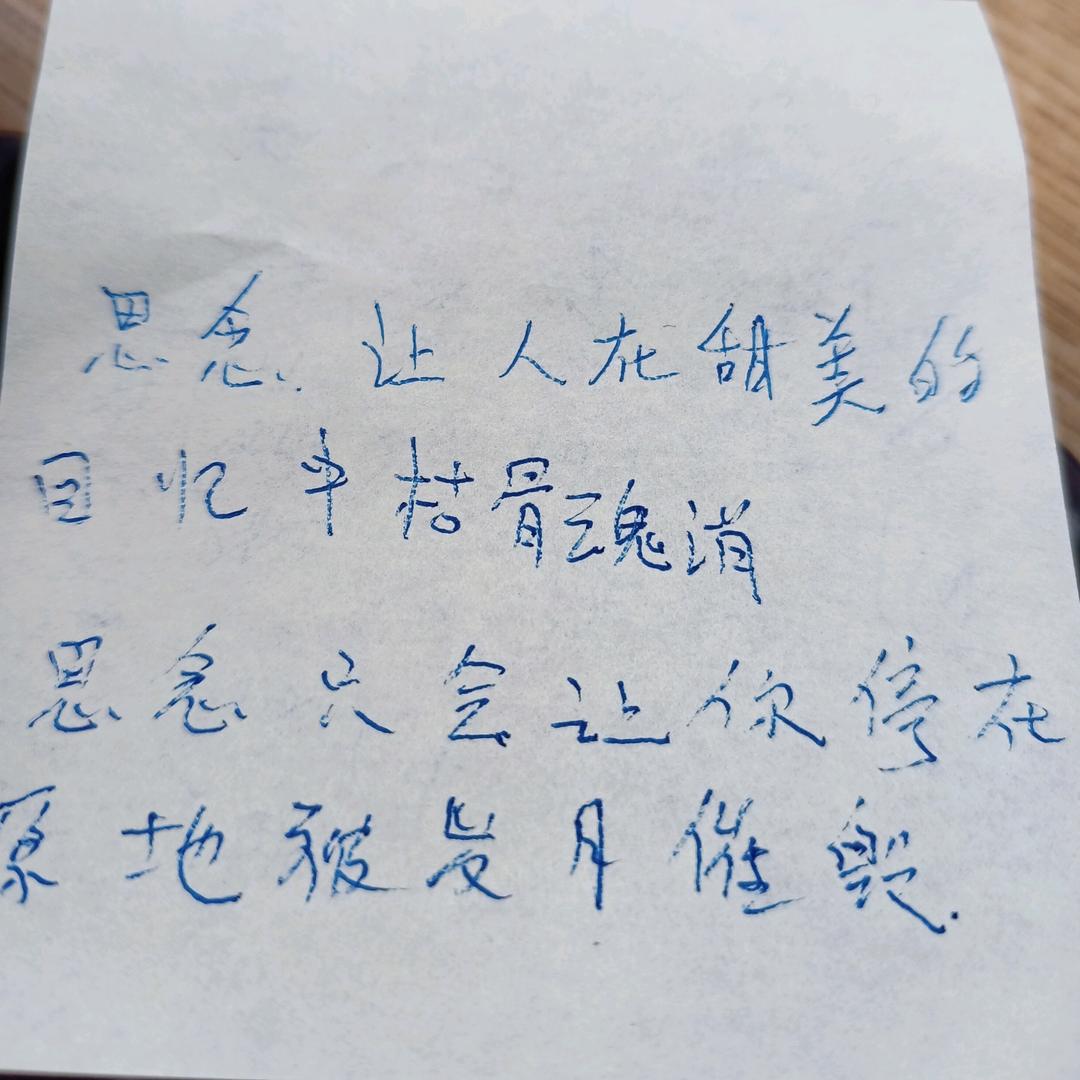 思念.让人在甜美的
回忆中枯骨魂消
思念只会让你停在
原地被岁月催毁.